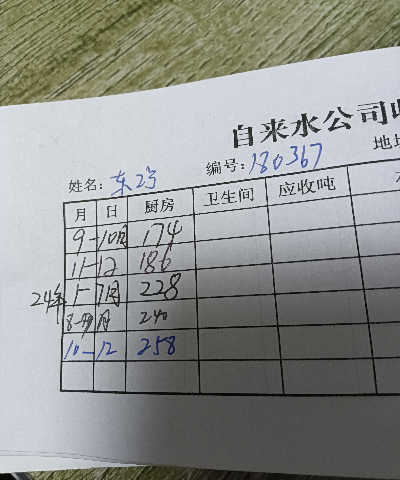 自来水公司收
姓名: 东2号 编号: 180367 地址
月 日 厨房 卫生间 应收吨
9-10月 174
11-12 186
24年 1-7月 228
8-9月 240
10-12 258